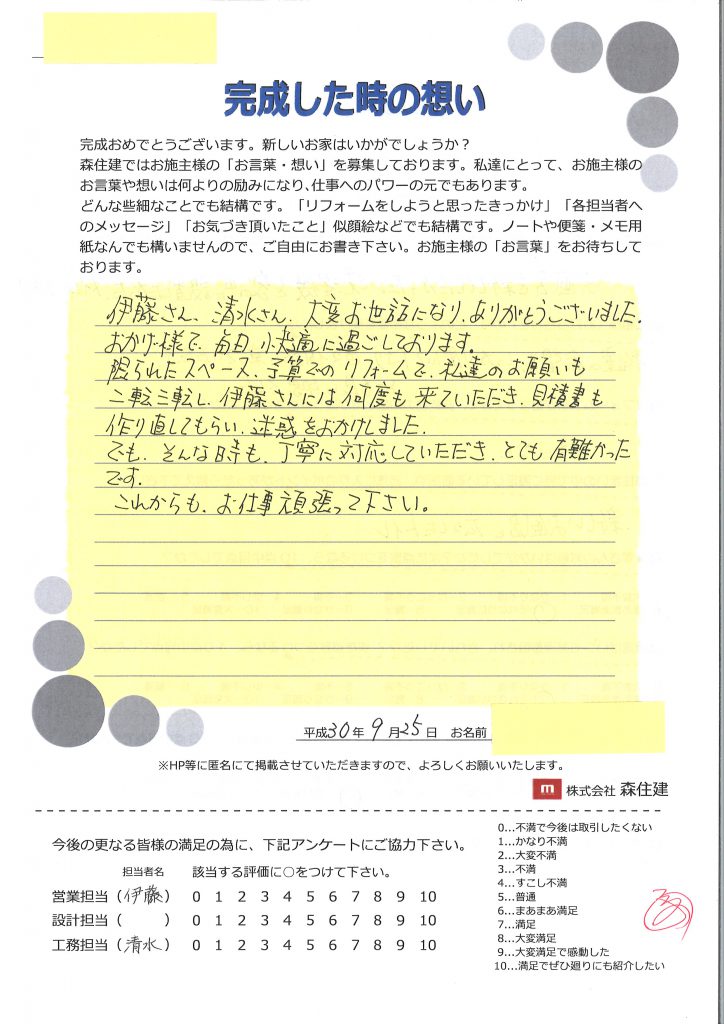 完成した時の想い
完成おめでとうございます。新しいお家はいかがでしょうか?
森住建ではお施主様の「お言葉・想い」を募集しております。私達にとって、お施主様の
お言葉や想いは何よりの励みになり、仕事へのパワーの元でもあります。
どんな些細なことでも結構です。「リフォームをしようと思ったきっかけ」「各担当者へ
のメッセージ」「お気づき頂いたこと」似顔絵などでも結構です。ノートや便箋・メモ用
紙なんでも構いませんので、ご自由にお書き下さい。お施主様の「お言葉」をお待ちして
おります。
伊藤さん、清水さん、大変お世話になり、ありがとうございました。
おかげ様で、毎日、快適に過ごしております。
限られたスペース、予算でのリフォームで、私達のお願いも
二転三転し、伊藤さんには何度も来ていただき、見積書も
作り直してもらい、迷惑をおかけしました。
でも、そんな時も、丁寧に対応していただき、とても有難かった
です。
これからも、お仕事頑張って下さい。
平成30年9月25日 お名前
※HP等に匿名にて掲載させていただきますので、よろしくお願いいたします。
m 株式会社 森住建
今後の更なる皆様の満足の為に、下記アンケートにご協力下さい。
担当者名 該当する評価に○をつけて下さい。
営業担当(伊藤) 0 1 2 3 4 5 6 7 8 9 10
設計担当( ) 0 1 2 3 4 5 6 7 8 9 10
工務担当(清水) 0 1 2 3 4 5 6 7 8 9 10
0…不満で今後は取引したくない
1…かなり不満
2…大変不満
3…不満
4…すこし不満
5…普通
6…まあまあ満足
7…満足
8…大変満足
9…大変満足で感動した
10…満足でぜひ廻りにも紹介したい